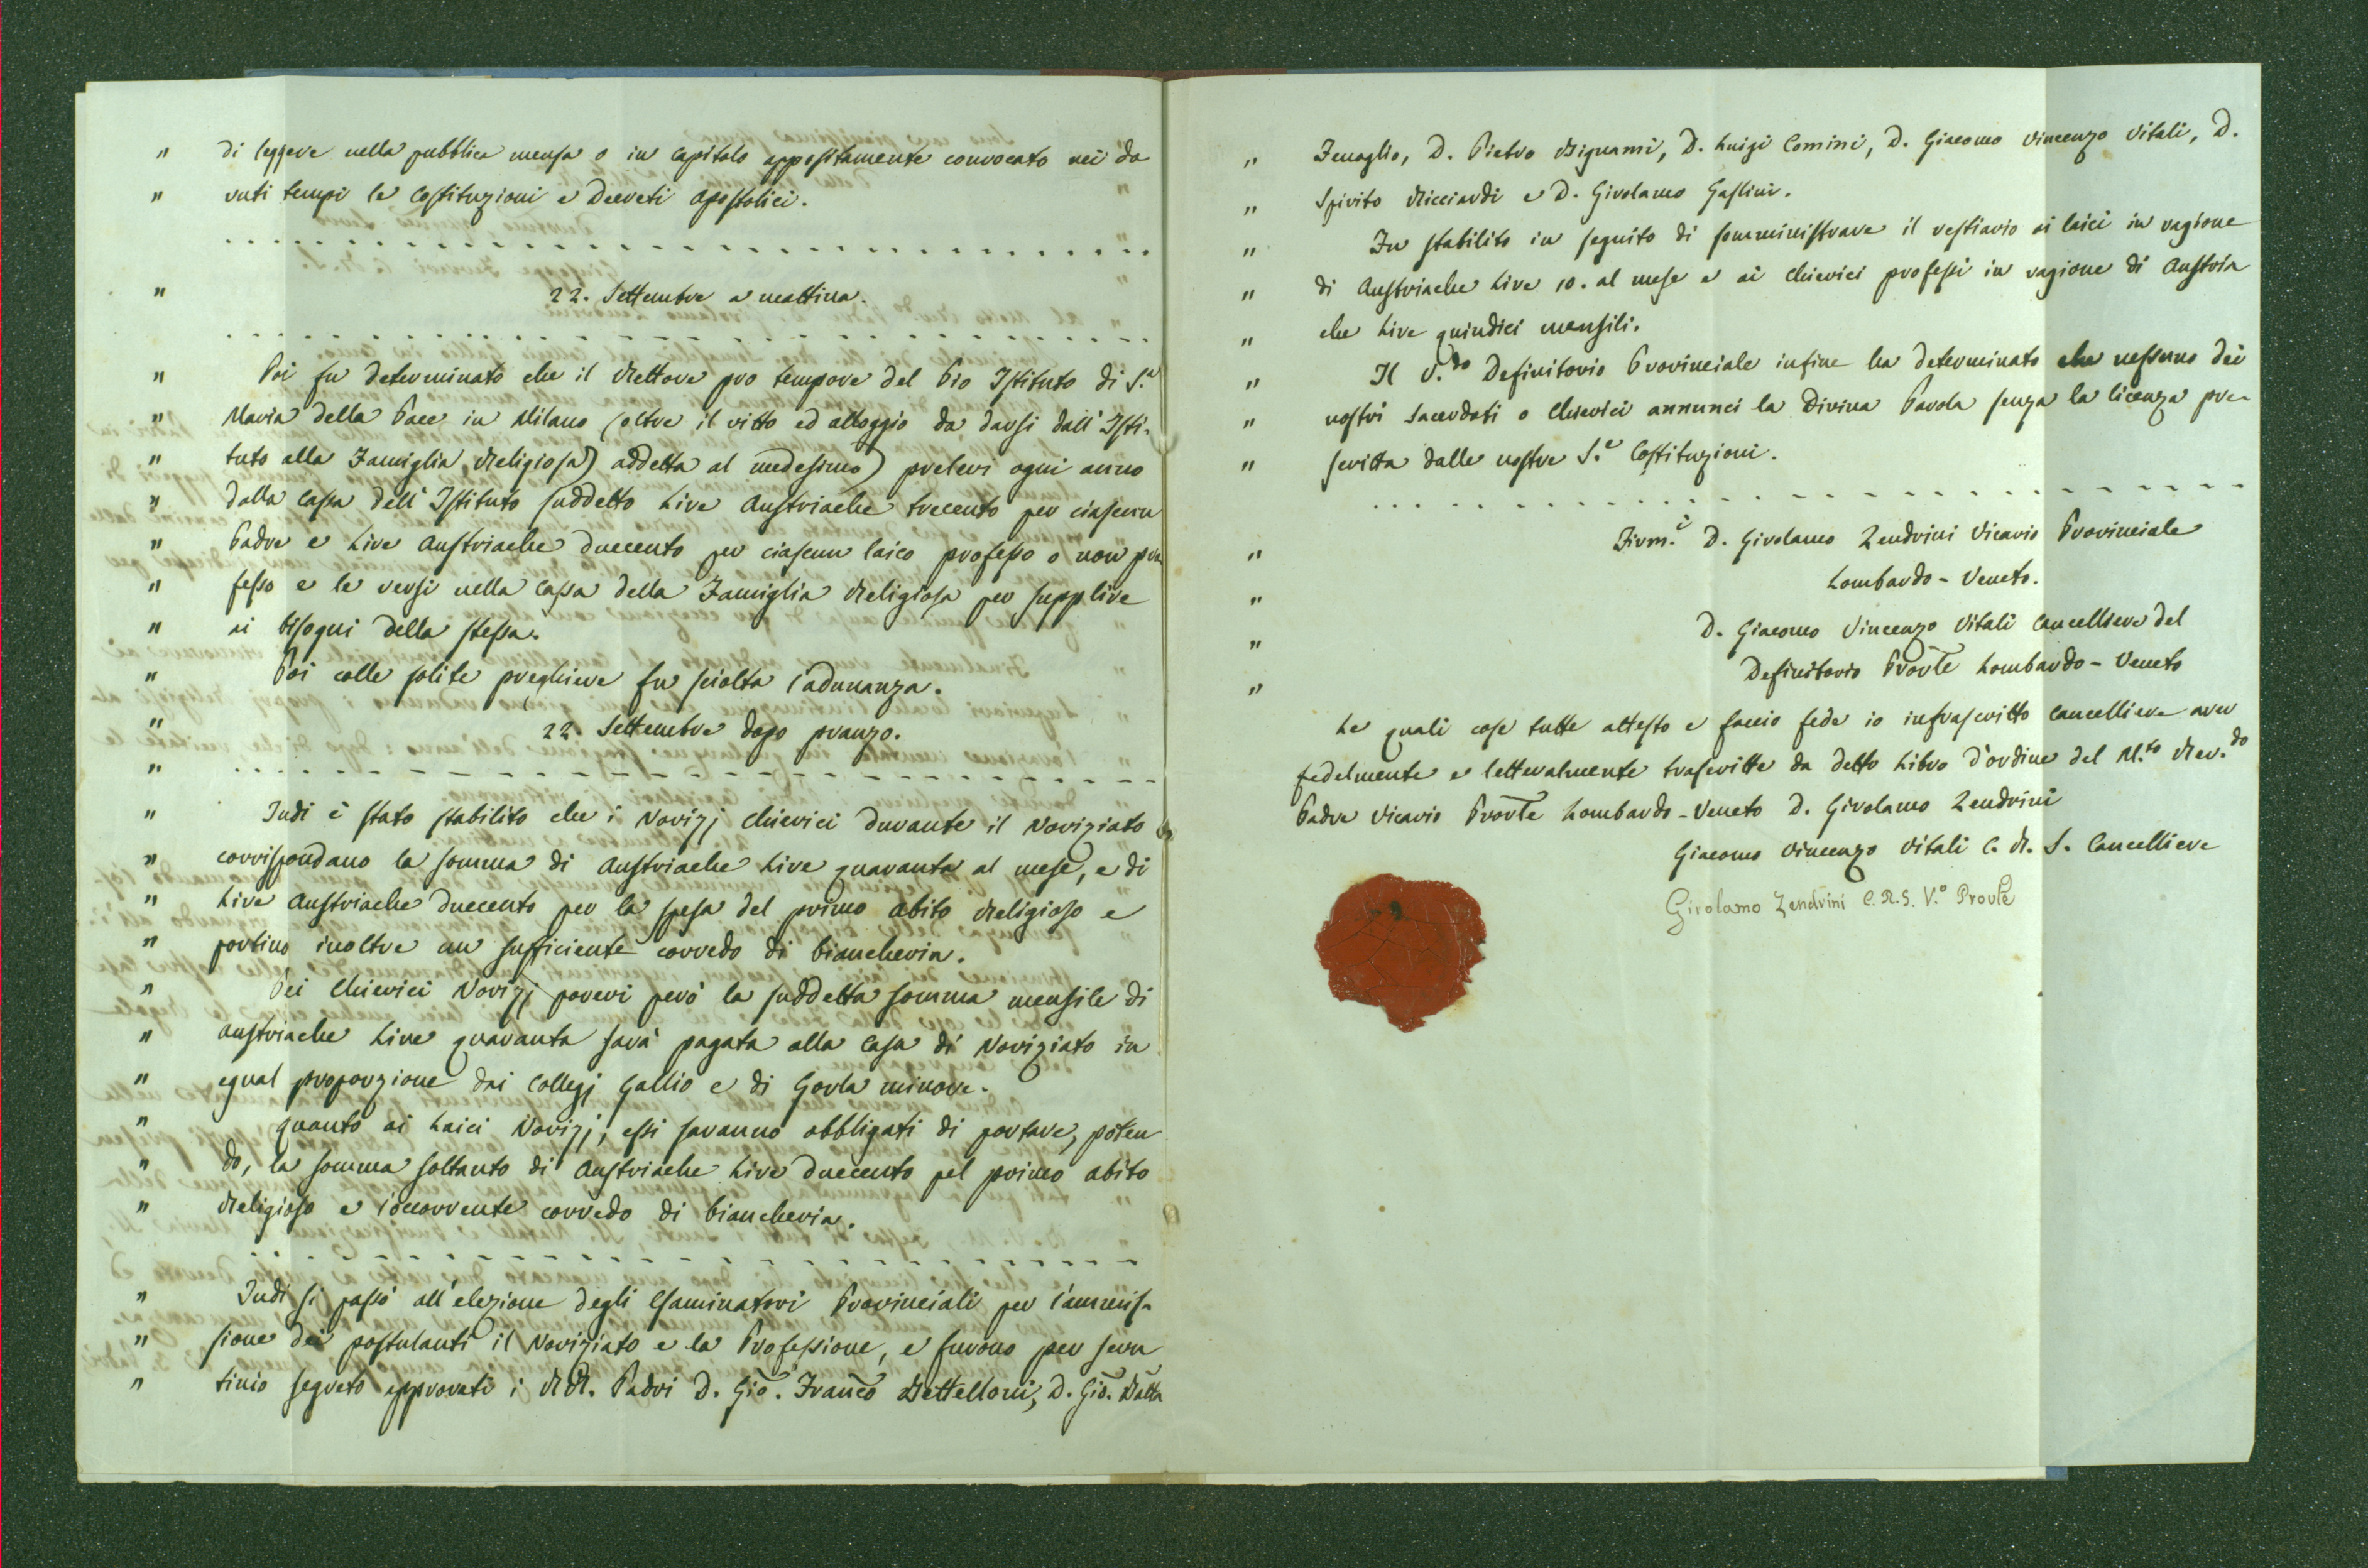 " di leggere nella pubblica mensa o in Capitolo appositamente convocato nei do
" vuti tempi le Costituzioni e Decreti Apostolici.
" 22. Settembre a mattina.
" Poi fu determinato che il Rettore pro tempore del Pio Istituto di S.ª
" Maria della Pace in Milano (oltre il vitto ed alloggio da darsi dall'Isti-
" tuto alla Famiglia Religiosa) addetta al medesimo) prelevi ogni anno
" dalla Cassa dell'Istituto suddetto Lire Austriache trecento per ciascun
" Padre e Lire Austriache duecento per ciascun laico professo o non pro
" fesso e le versi nella Cassa della Famiglia Religiosa per supplire
" ai bisogni della stessa.
" Poi colle solite preghiere fu sciolta l'adunanza.
" 22. Settembre dopo pranzo.
"
" Indi è stato stabilito che i Novizj Chierici durante il Noviziato
" corrispondano la somma di Austriache Lire quaranta al mese, e di
" Lire Austriache duecento per la spesa del primo abito Religioso e
" portino inoltre un sufficiente corredo di biancheria.
" Pei Chierici Novizj poveri però la suddetta somma mensile di
" austriache Lire quaranta sarà pagata alla Casa di Noviziato in
" egual proporzione dai Collegj Gallio e di Gorla minore.
" Quanto ai Laici Novizj, essi saranno obbligati di portare, poten
" do, la somma soltanto di Austriache Lire duecento pel primo abito
" Religioso e l'occorrente corredo di biancheria.
" Indi si passò all'elezione degli Esaminatori Provinciali per l'ammis-
" sione dei postulanti il Noviziato e la Professione, e furono per scru
" tinio segreto approvati i RR. Padri D. Gio. Franco Bettelloni, D. Gio. Batta
" Fenoglio, D. Pietro Bignami, D. Luigi Comini, D. Giacomo Vincenzo Vitali, D.
" Spirito Ricciardi e D. Girolamo Gaslini.
" Fu stabilito in seguito di somministrare il vestiario ai laici in ragione
" di Austriache Lire 10. al mese e ai Chierici professi in ragione di Austria
" che Lire quindici mensili.
" Il V.do Definitorio Provinciale infine ha determinato che nessuno dei
" nostri Sacerdoti o Chierici annunci la Divina Parola senza la licenza pre-
" scritta dalle nostre S.e Costituzioni.
" Firm.i D. Girolamo Zendrini Vicario Provinciale
" Lombardo-Veneto.
" D. Giacomo Vincenzo Vitali Cancelliere del
" Definitorio Provle Lombardo-Veneto
Le quali cose tutte attesto e faccio fede io infrascritto Cancelliere aver
fedelmente e letteralmente trascritte da detto Libro d'ordine del M.to Rev.do
Padre Vicario Provle Lombardo-Veneto D. Girolamo Zendrini
Giacomo Vincenzo Vitali C. R. S. Cancelliere
Girolamo Zendrini C.R.S. V.º Provle